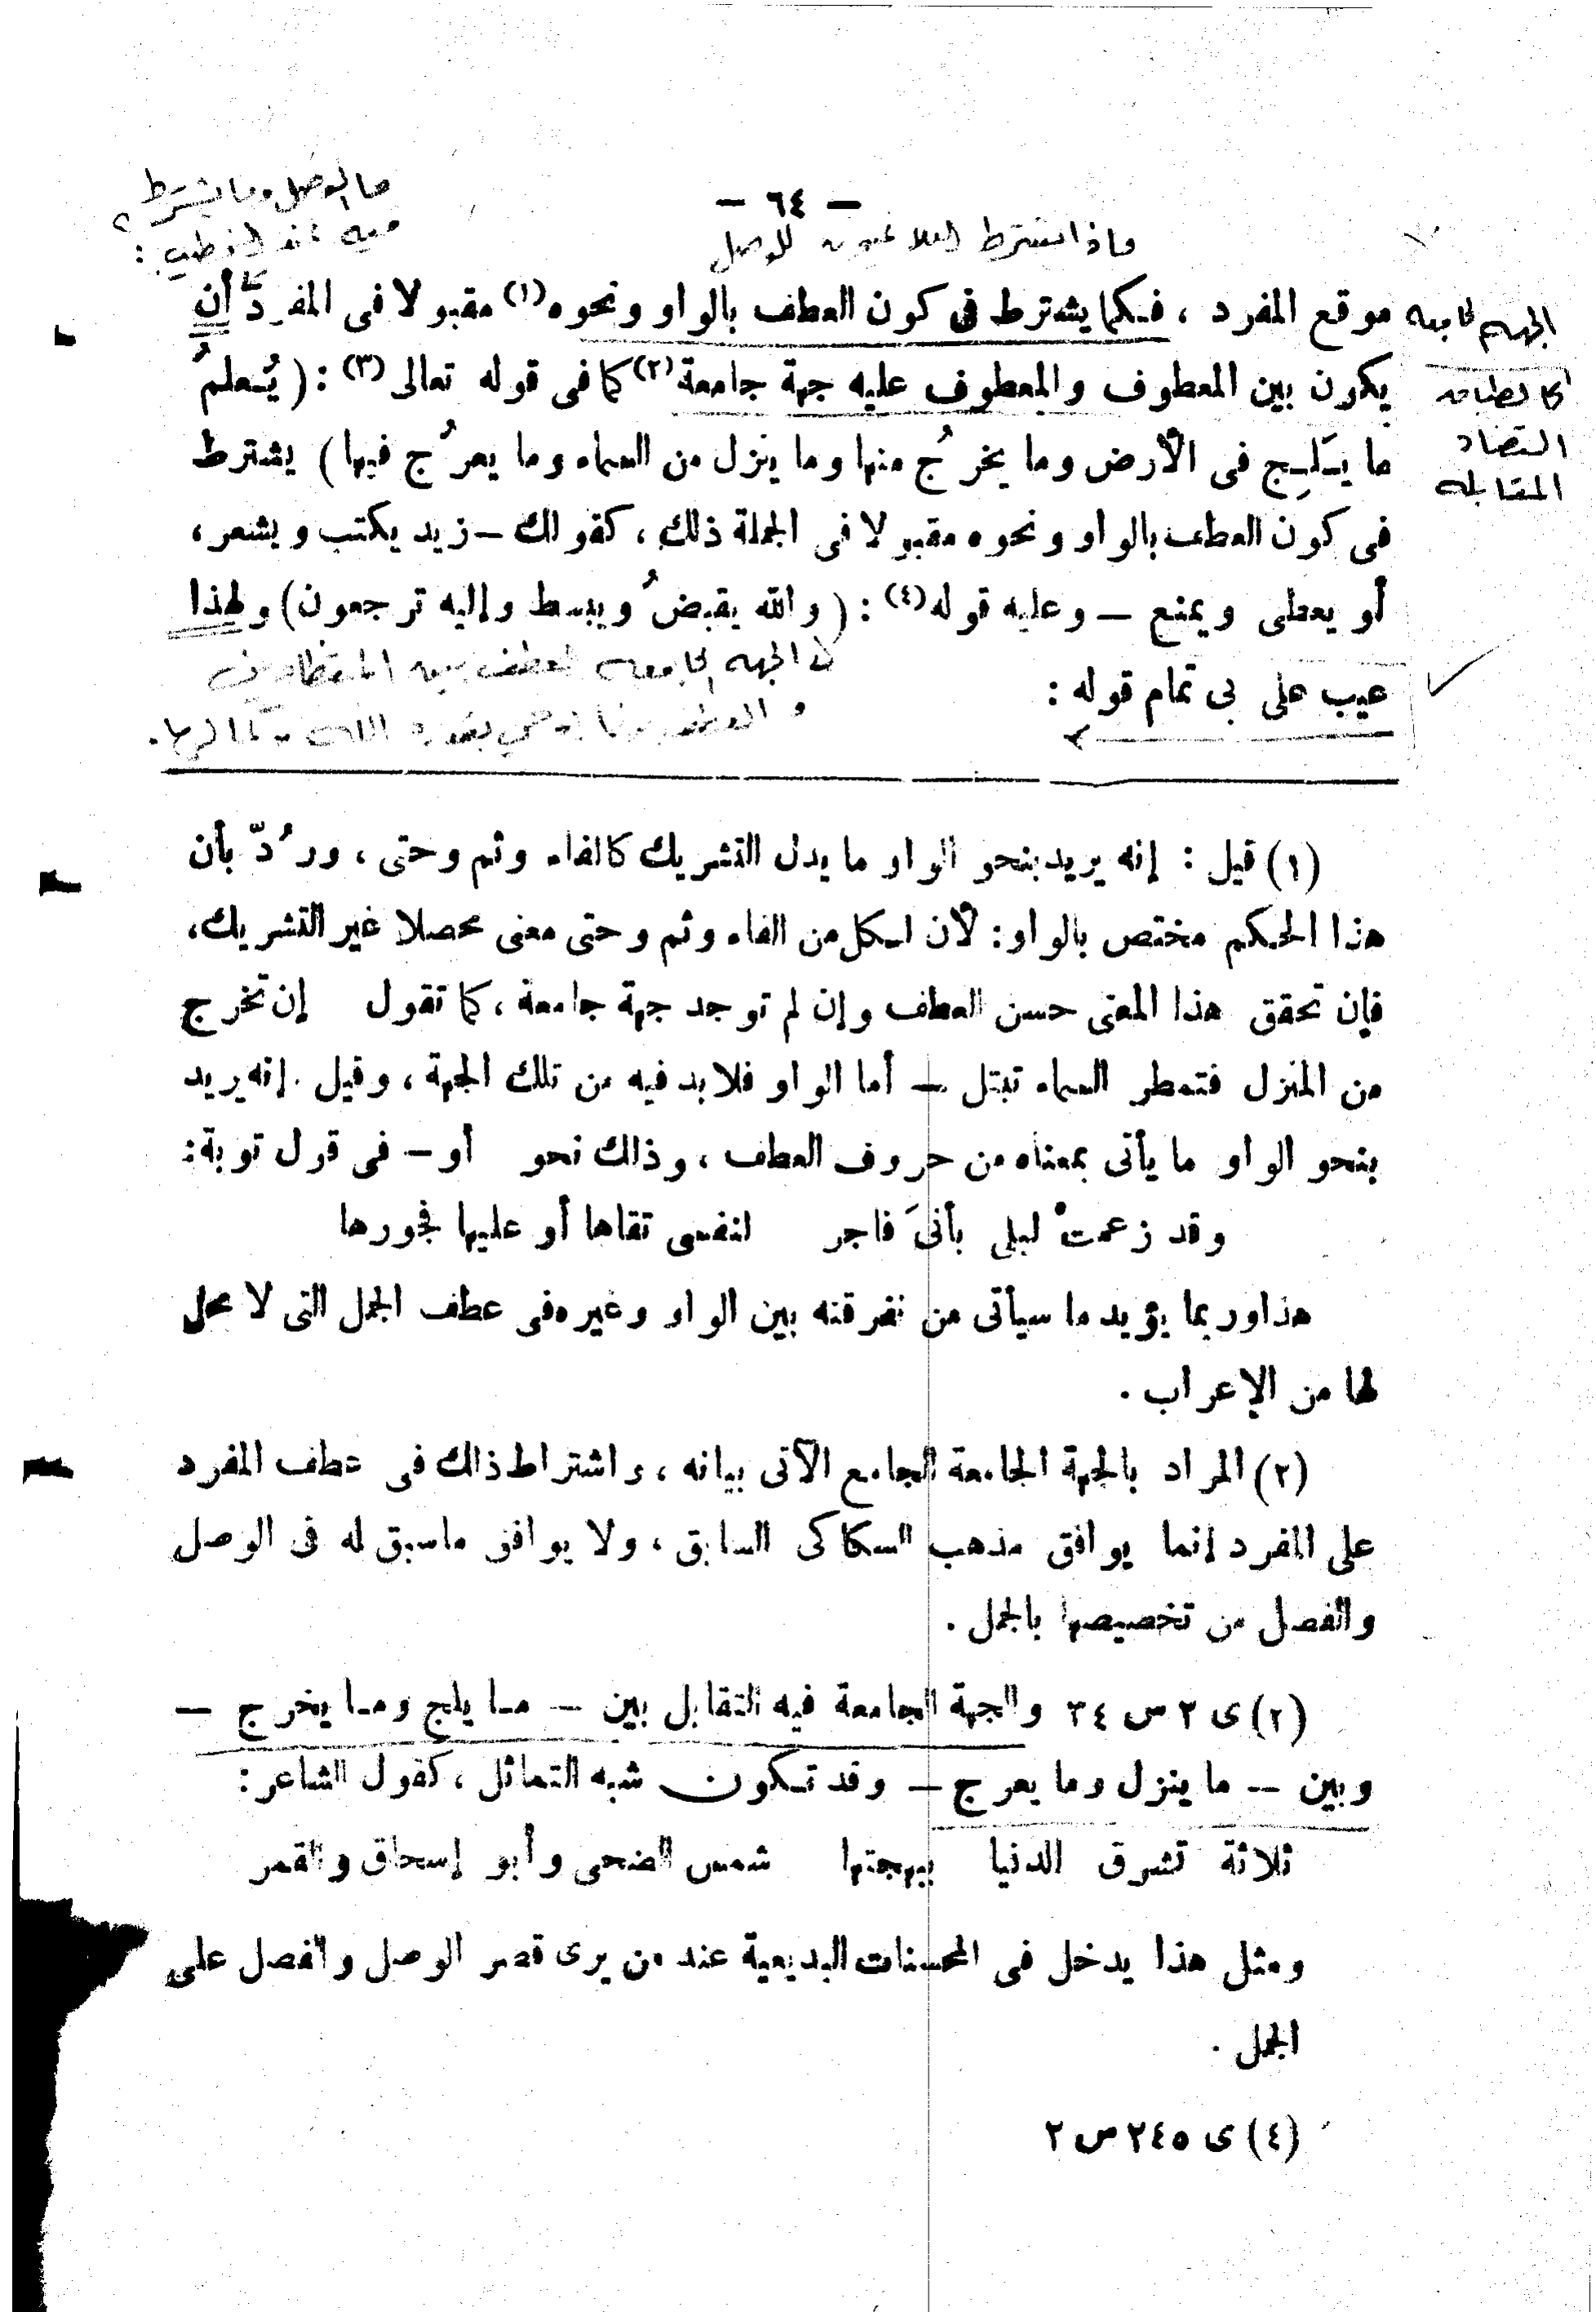 — ٦٤ —
ماذا اشترط البلاغيون للوصل
ما الوصل وما يشترط
فيه عند الخطيب ؟
موقع المفرد ، فكما يشترط فى كون العطف بالواو ونحوه (١) مقبولا فى المفرد أن
يكون بين المعطوف والمعطوف عليه جهة جامعة (٢) كما فى قوله تعالى (٣) : ( يُعلمُ
ما يَلِج فى الأرض وما يخرُج منها وما ينزل من السماء وما يعرُج فيها ) يشترط
فى كون العطف بالواو ونحوه مقبولا فى الجملة ذلك ، كقولك — زيد يكتب ويشعر ،
أو يعطى ويمنع — وعليه قوله (٤) : ( والله يقبضُ ويبسط وإليه ترجعون ) ولهذا
عيب على بى تمام قوله :
الجهه الجامعه
كالطباق
التضاد
المقابله
الجهه الجامعه العطف بين
(١) قيل : إنه يريد بنحو الواو ما يدل التشريك كالفاء وثم وحتى ، ورُدّ بأن
هذا الحكم مختص بالواو : لأن لكل من الفاء وثم وحتى معنى محصلا غير التشريك ،
فإن تحقق هذا المعنى حسن العطف وإن لم توجد جهة جامعة ، كما تقول إن تخرج
من المنزل فتمطر السماء تبتل — أما الواو فلا بد فيه من تلك الجهة ، وقيل . إنه يريد
بنحو الواو ما يأتى بمعناه من حروف العطف ، وذلك نحو أو — فى قول توبة :
وقد زعمتْ ليلى بأنىَ فاجر لنفسى تقاها أو عليها فجورها
هذا وربما يؤيد ما سيأتى من تفرقته بين الواو وغيره فى عطف الجمل التى لا محل
لها من الإعراب .
(٢) المراد بالجهة الجامعة الجامع الآتى بيانه ، واشتراط ذلك فى عطف المفرد
على المفرد إنما يوافق مذهب السكاكى السابق ، ولا يوافق ماسبق له فى الوصل
والفصل من تخصيصها بالجمل .
(٢) ى ٢ س ٣٤ والجهة الجامعة فيه التقابل بين — ما يلج وما يخرج —
وبين — ما ينزل وما يعرج — وقد تكون شبه التماثل ، كقول الشاعر :
ثلاثة تشرق الدنيا ببهجتها شمس الضحى وأبو إسحاق والقمر
ومثل هذا يدخل فى المحسنات البديعية عند من يرى قصر الوصل والفصل على
الجمل .
(٤) ى ٢٤٥ س ٢